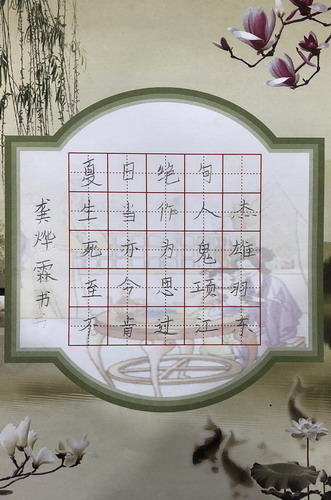 夏日绝句
生当作人杰
死亦为鬼雄
至今思项羽
不肯过江东
龚烨霖书